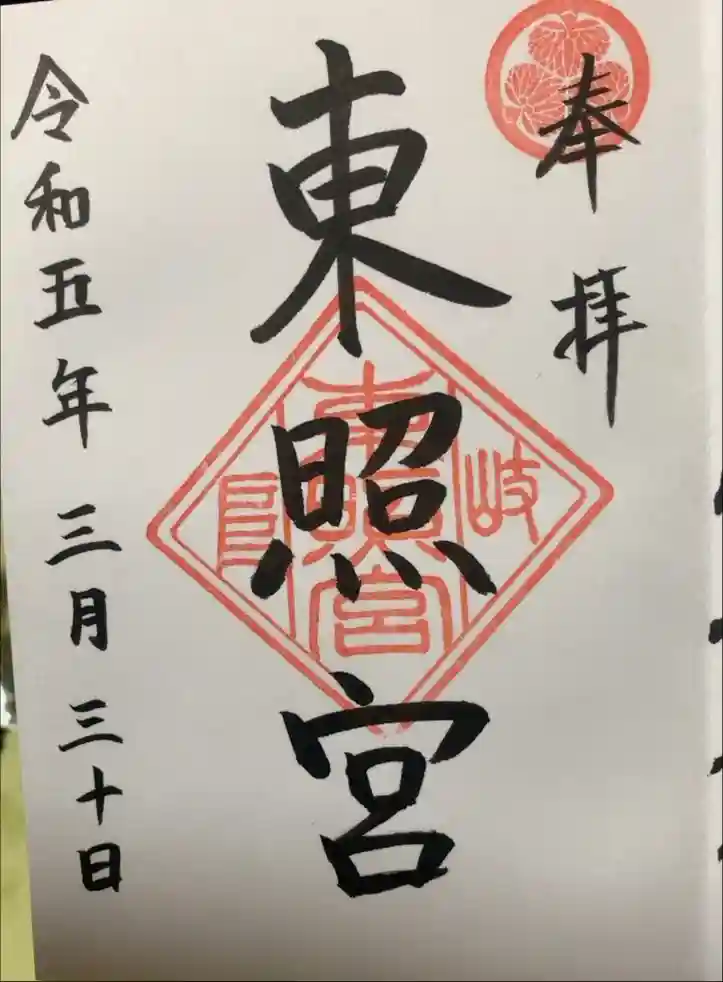 奉拝
東照宮
令和五年三月三十日
岐阜
東照宮